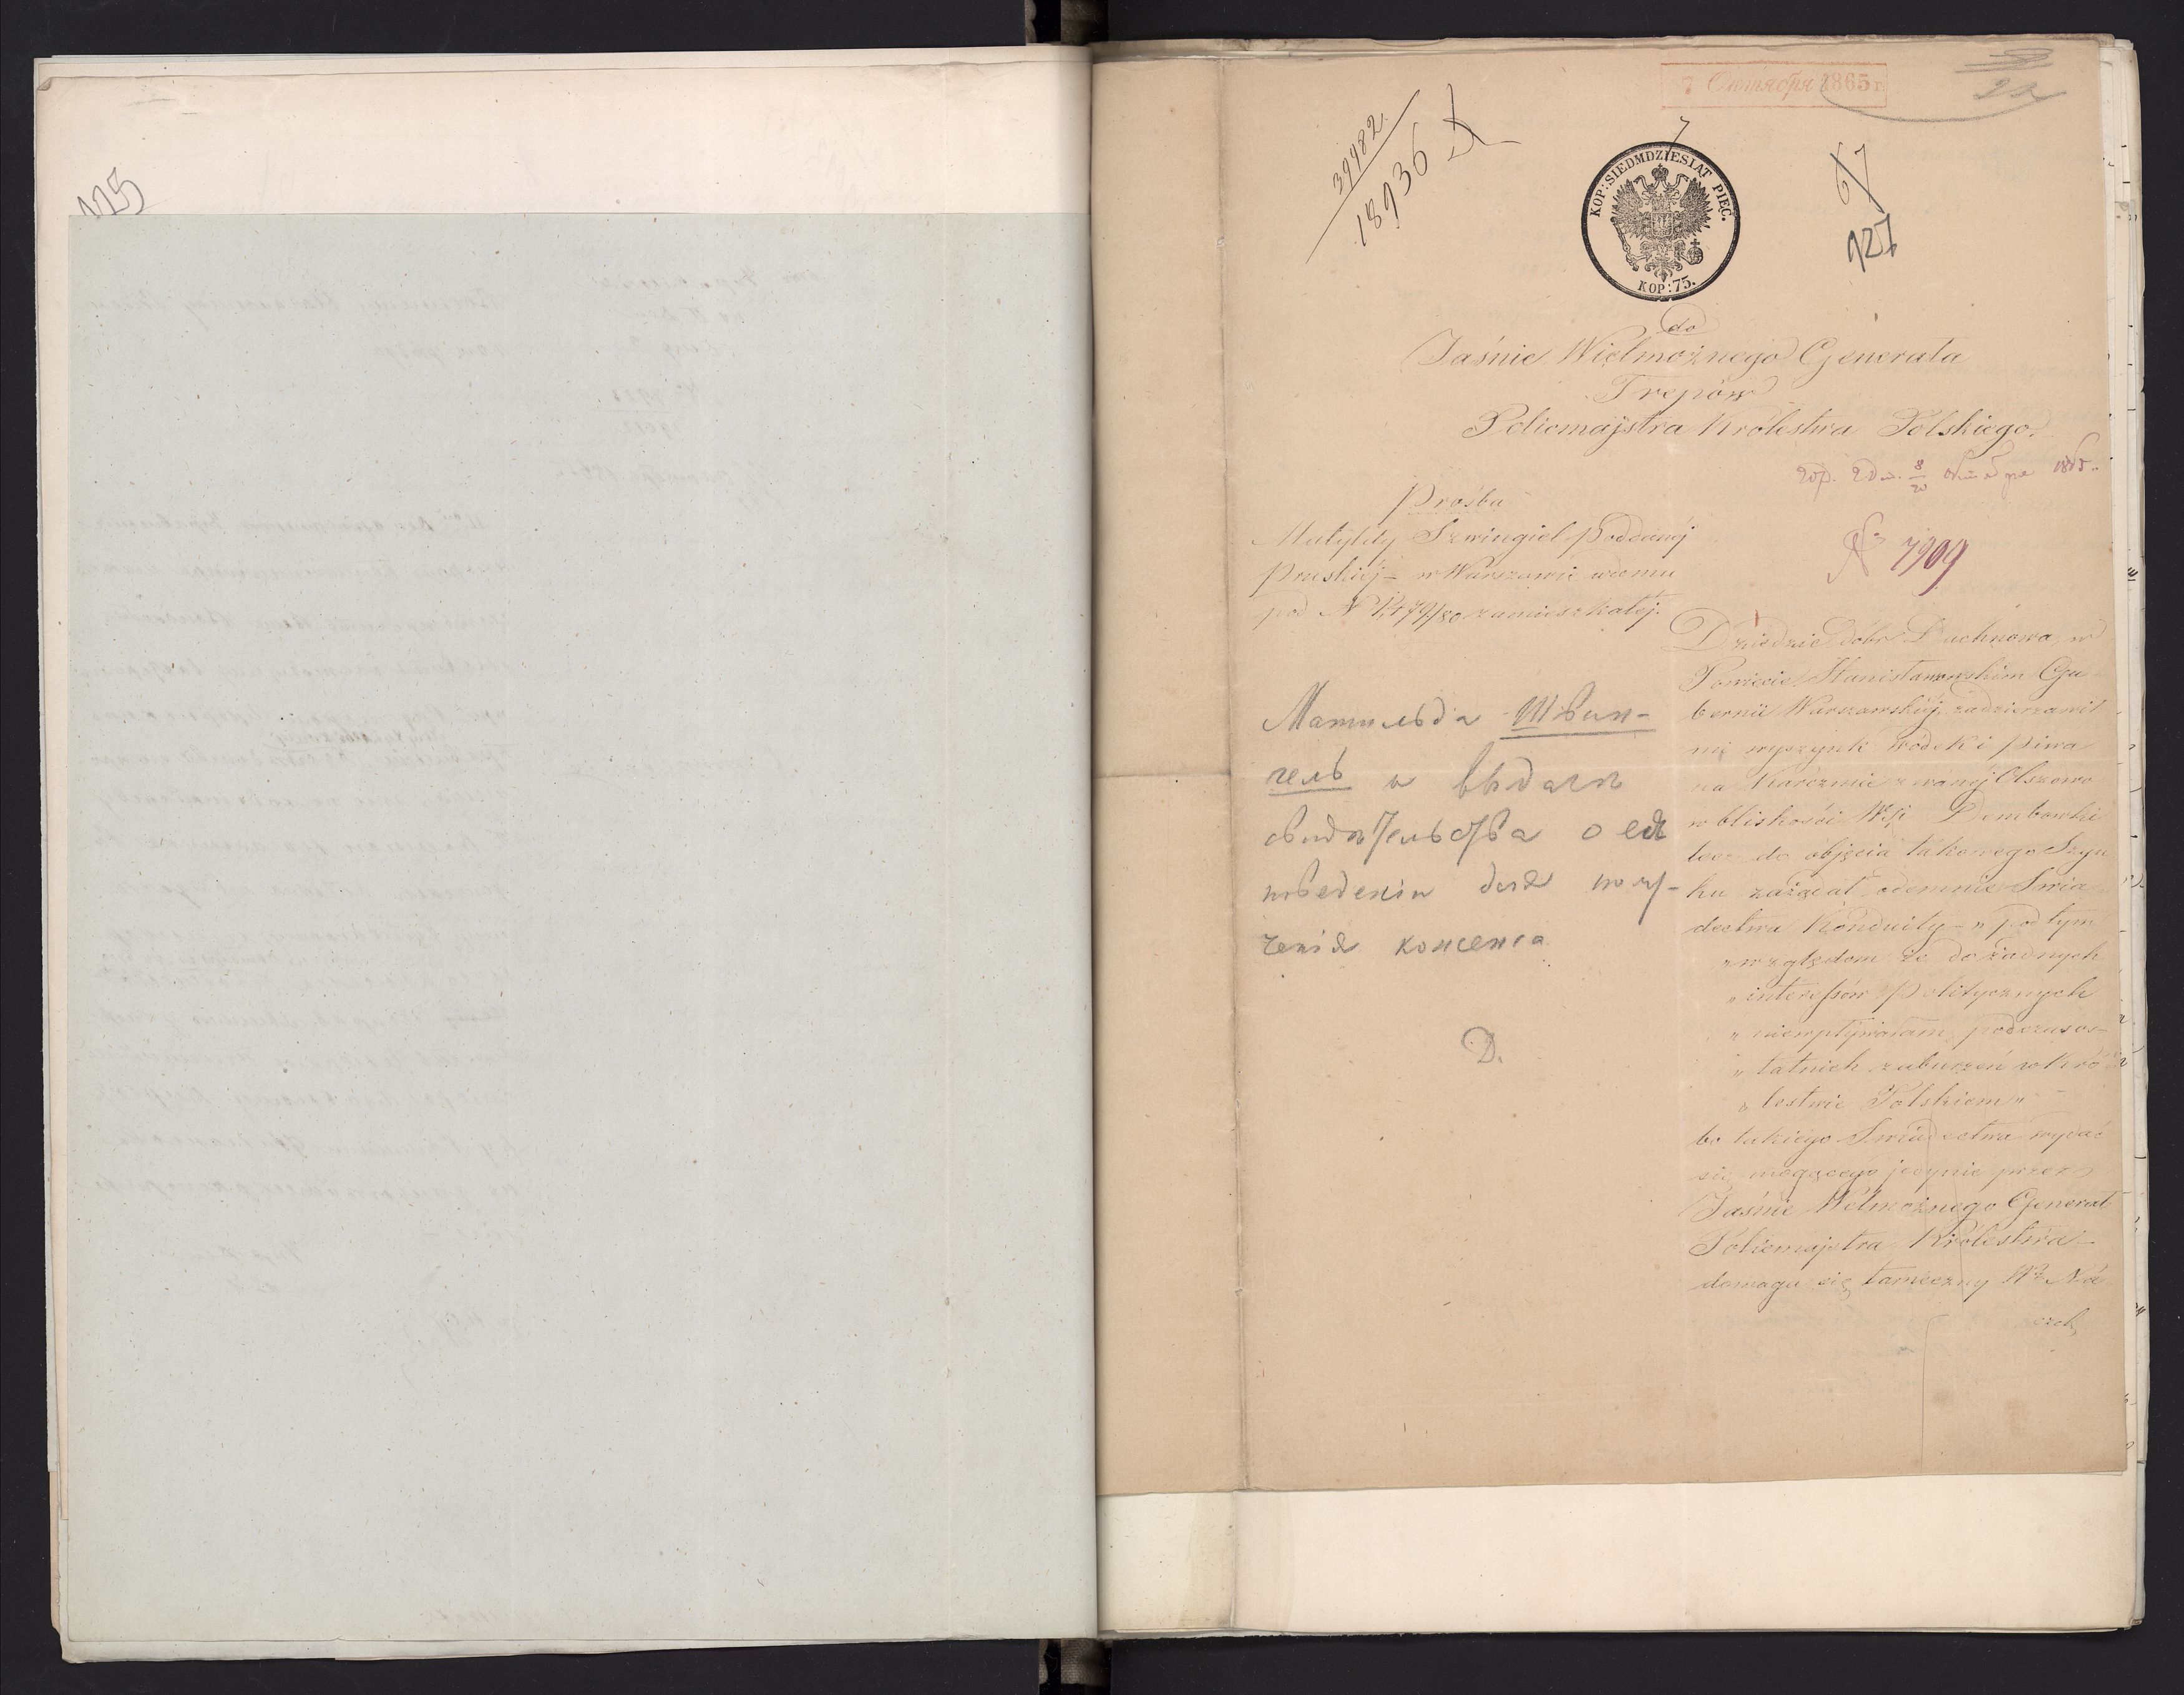 125
7 Октября 1865 г.
22
39482
18936
KOP: SIEDMDZIESIĄT PIĘĆ.
KOP: 75.
67
127
do
Jaśnie Wielmożnego Generała
Trepów
Policmajstra Królestwa Polskiego.
8/20 Октября 1865.
№ 7909
Prośba
Matyldy Szwingiel Poddanéj
Pruskiéj – w Warszawie w domu
pod № 1,479/80 zamieszkałej.
Матильда Швин-
гель о выдаче
свидѣтельства о ея
поведеніи для полу-
ченія консенса
D.
Dziedzic dóbr Duchnowa w
Powiecie Stanisławowskim Gu
bernii Warszawskiéj, zadzierżawił
mi wyszynk wódek i piwa
na Karczmie zwanéj Olszowo
w bliskości Wsi Dembowki
lecz do objęcia takowego Szyn
ku zażądał odemnie Swia
dectwa Konduity – „pod tym
„względem że do żadnych
„interessów Politycznych
„niewpływałam, podczas os-
„tatnich zaburzeń w Kró
„lestwie Polskiem„
bo takiego Swiadectwa wydać
się mogącego jedynie przez
Jaśnie Wielmożnego Generał
Policmajstra Królestwa –
domaga się tameczny Wż Na
czel